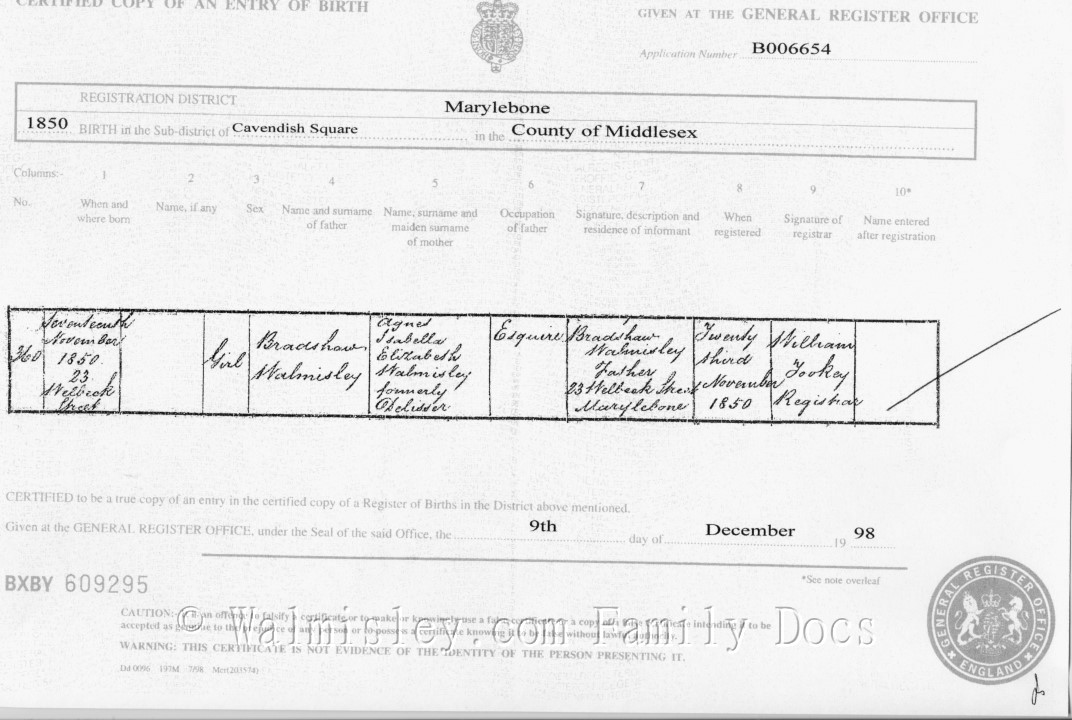 CERTIFIED COPY OF AN ENTRY OF BIRTH
GIVEN AT THE GENERAL REGISTER OFFICE
Application Number B006654
REGISTRATION DISTRICT Marylebone
1850 BIRTH in the Sub-district of Cavendish Square in the County of Middlesex
Columns:- 1 2 3 4 5 6 7 8 9 10*
No.
When and
where born
Name, if any
Sex
Name and surname
of father
Name, surname and
maiden surname
of mother
Occupation
of father
Signature, description and
residence of informant
When
registered
Signature of
registrar
Name entered
after registration
360
Seventeenth
November
1850
23
Welbeck
Street
Girl
Bradshaw
Walmisley
Agnes
Isabella
Elizabeth
Walmisley
formerly
Delisser
Esquire
Bradshaw
Walmisley
Father
23 Welbeck Street
Marylebone
Twenty
third
November
1850
William
Tookey
Registrar
CERTIFIED to be a true copy of an entry in the certified copy of a Register of Births in the District above mentioned.
Given at the GENERAL REGISTER OFFICE, under the Seal of the said Office, the 9th day of December 19 98
*See note overleaf
BXBY 609295
CAUTION:- It is an offence to falsify a certificate or to make or knowingly use a false certificate or a copy of a false certificate intending it to be
accepted as genuine to the prejudice of any person or to possess a certificate knowing it to be false without lawful authority.
WARNING: THIS CERTIFICATE IS NOT EVIDENCE OF THE IDENTITY OF THE PERSON PRESENTING IT.
© Walmisley.com Family Docs
GENERAL REGISTER OFFICE
ENGLAND